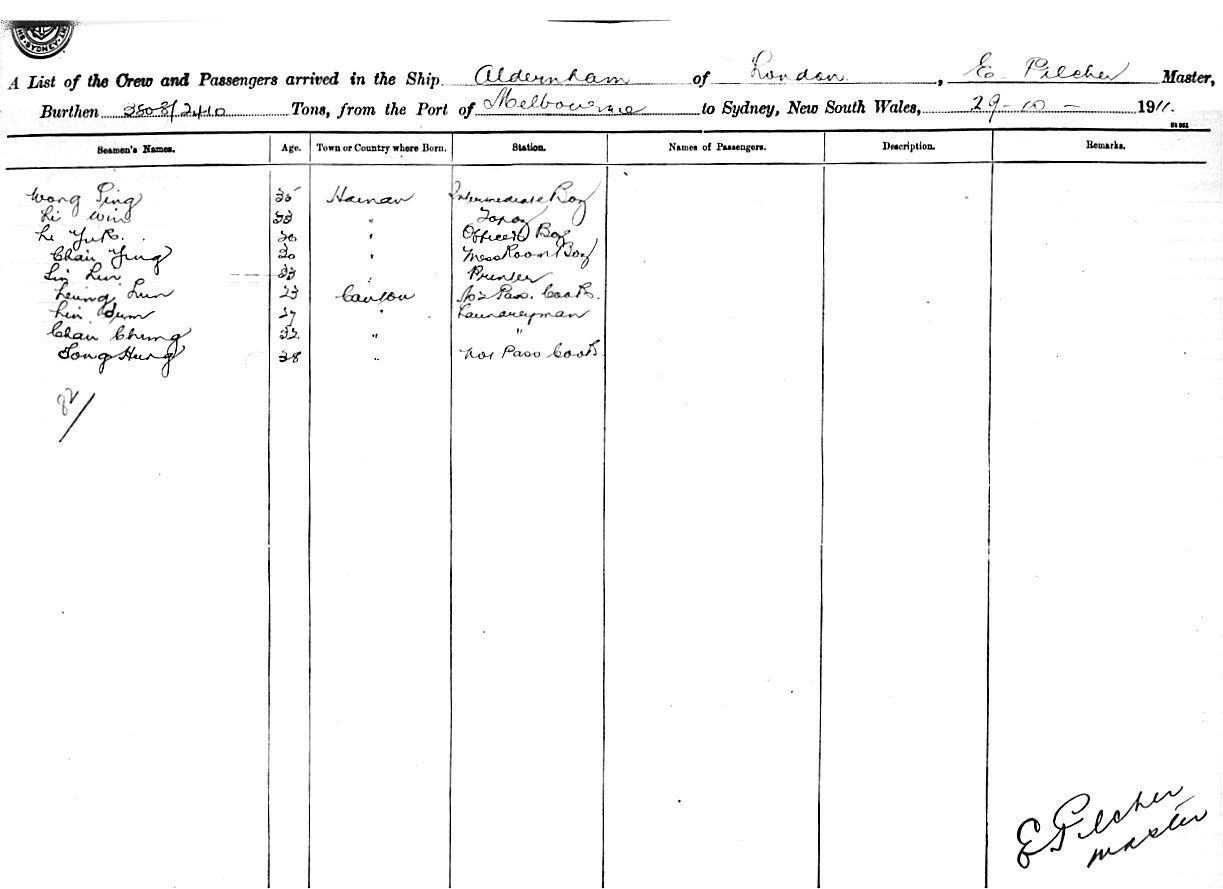 SYDNEY
A List of the Crew and Passengers arrived in the Ship Aldernham of London, E. Pilcher Master,
Burthen 3808/2410 Tons, from the Port of Melbourne to Sydney, New South Wales, 29-10- 1911.
Seamen's Names. Age. Town or Country where Born. Station. Names of Passengers. Description. Remarks.
Wong Ping 35 Hainan Intermediate Boy
Li Win 33 " Topaz
Li Yuk. 30 " Officers Boy
Chan Ying 30 " Mess Room Boy
Lin Lin 33 Printer
Leung Lun 23 Canton No 2 Pass. Cook.
Lin Sum 27 " Laundryman
Chan Cheung 32 " "
Tong Hung 38 " No 1 Pass Cook
82/
E Pilcher
Master